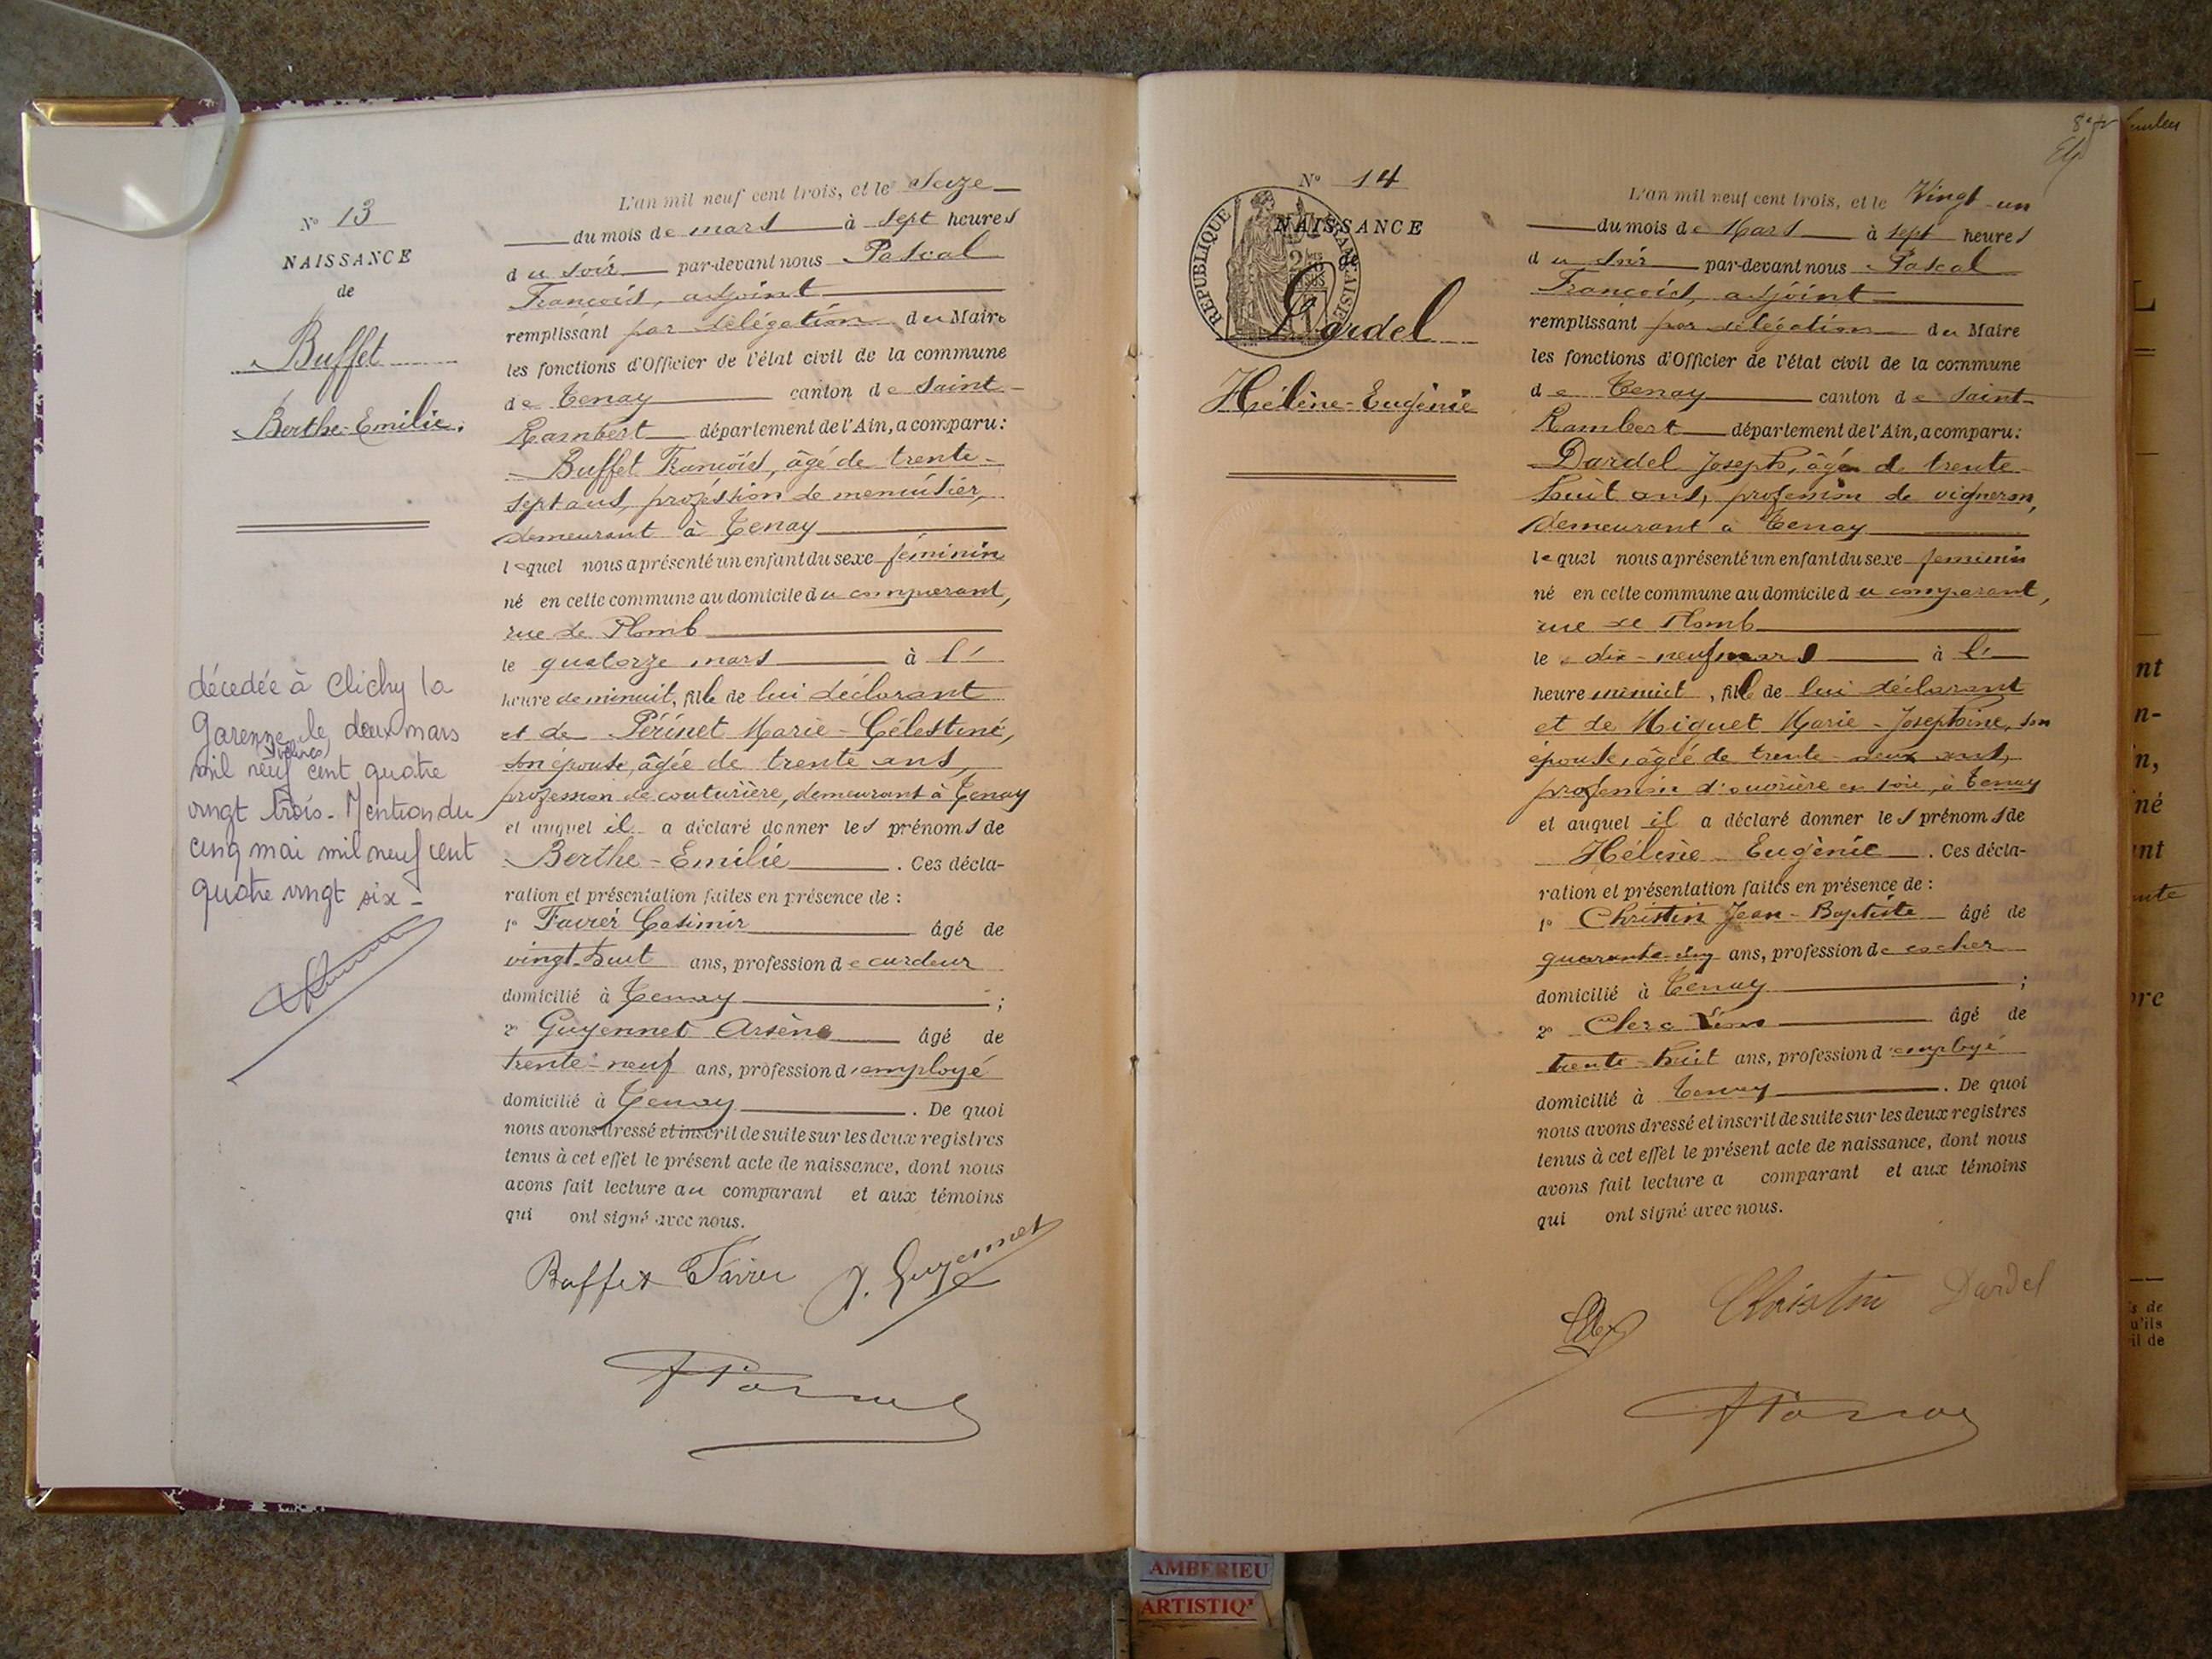 N° 13
NAISSANCE
de
Buffet
Berthe-Emilie.
décedée à Clichy la
Garenne le deux mars
mil neuf cent quatre
vingt trois. Mention du
cinq mai mil neuf cent
quatre vingt six -
L'an mil neuf cent trois, et le Seize
du mois de mars à sept heures
du soir par-devant nous Pascal
François, adjoint
remplissant par délégation du Maire
les fonctions d'Officier de l'état civil de la commune
de Tenay canton de Saint-
Rambert département de l'Ain, a comparu:
Buffet François, âgé de trente-
sept ans, profession de menuisier,
demeurant à Tenay
lequel nous a présenté un enfant du sexe féminin
né en cette commune au domicile du comparant,
rue de Plomb
le quatorze mars à l'
heure de minuit, fille de lui déclarant
et de Périnet Marie-Célestine,
son épouse, âgée de trente ans,
profession de couturière, demeurant à Tenay
et auquel il a déclaré donner les prénoms de
Berthe-Emilie. Ces décla-
ration et présentation faites en présence de :
1° Favier Casimir âgé de
vingt-huit ans, profession de cardeur
domicilié à Tenay ;
2° Guyennet Arsène âgé de
trente-neuf ans, profession d'employé
domicilié à Tenay. De quoi
nous avons dressé et inscrit de suite sur les deux registres
tenus à cet effet le présent acte de naissance, dont nous
avons fait lecture au comparant et aux témoins
qui ont signé avec nous.
Buffet Favier A. Guyennet
N° 14
REPUBLIQUE FRANÇAISE
NAISSANCE
de
Dardel
Hélène-Eugénie
L'an mil neuf cent trois, et le Vingt-un
du mois de Mars à sept heures
du soir par-devant nous Pascal
François, adjoint
remplissant par délégation du Maire
les fonctions d'Officier de l'état civil de la commune
de Tenay canton de Saint-
Rambert département de l'Ain, a comparu:
Dardel Joseph, âgé de trente
huit ans, profession de vigneron,
demeurant à Tenay
lequel nous a présenté un enfant du sexe feminin
né en cette commune au domicile du comparant,
rue de Plomb
le dix-neuf mars à l'
heure minuit, fille de lui déclarant
et de Miguet Marie-Josephine, son
épouse, âgée de trente-deux ans,
profession d'ouvrière en soie, à Tenay
et auquel il a déclaré donner les prénoms de
Hélène Eugénie. Ces décla-
ration et présentation faites en présence de :
1° Christin Jean-Baptiste âgé de
quarante-cinq ans, profession de cocher
domicilié à Tenay ;
2° Clerc âgé de
trente-huit ans, profession d'employé
domicilié à Tenay. De quoi
nous avons dressé et inscrit de suite sur les deux registres
tenus à cet effet le présent acte de naissance, dont nous
avons fait lecture a comparant et aux témoins
qui ont signé avec nous.
Christin Dardel
AMBERIEU
ARTISTIQ